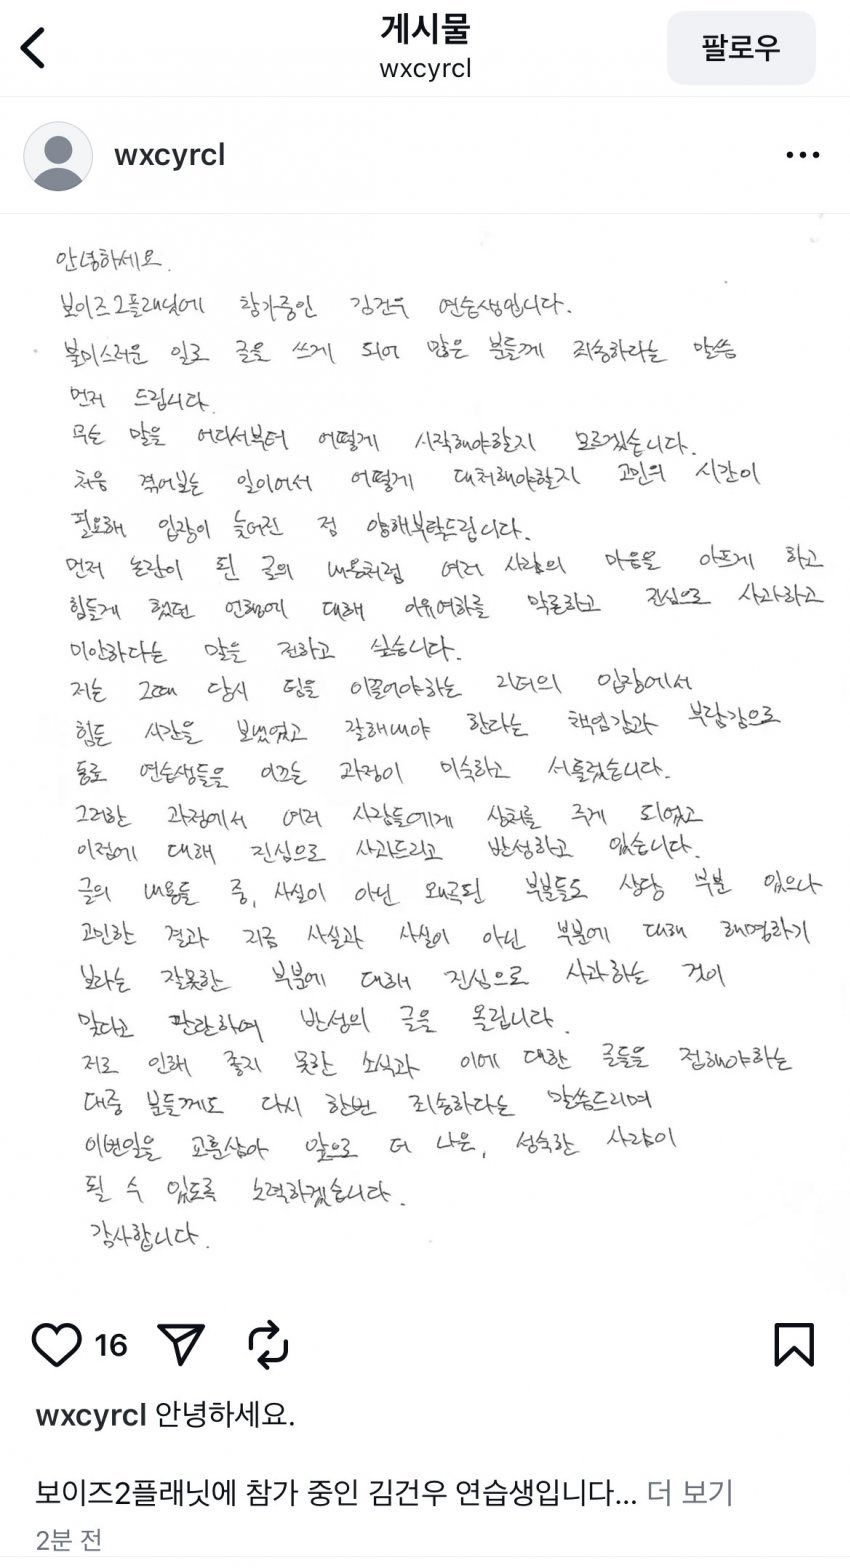 게시물
wxcyrcl
팔로우
wxcyrcl
안녕하세요.
보이즈2플래닛에 참가중인 김건우 연습생입니다.
불미스러운 일로 글을 쓰게 되어 많은 분들께 죄송하다는 말씀
먼저 드립니다.
무슨 말을 어디서부터 어떻게 시작해야할지 모르겠습니다.
처음 겪어보는 일이어서 어떻게 대처해야할지 고민의 시간이
필요해 입장이 늦어진 점 양해부탁드립니다.
먼저 논란이 된 글의 내용처럼 여러 사람의 마음을 아프게 하고
힘들게 했던 언행에 대해 이유여하를 막론하고 진심으로 사과하고
미안하다는 말을 전하고 싶습니다.
저는 그때 당시 팀을 이끌어야하는 리더의 입장에서
힘든 시간을 보냈었고 잘해내야 한다는 책임감과 부담감으로
동료 연습생들을 이끄는 과정이 미숙하고 서툴렀습니다.
그러한 과정에서 여러 사람들에게 상처를 주게 되었고
이점에 대해 진심으로 사과드리고 반성하고 있습니다.
글의 내용들 중, 사실이 아닌 왜곡된 부분들도 상당 부분 있으나
고민한 결과 지금 사실과 사실이 아닌 부분에 대해 해명하기
보다는 잘못한 부분에 대해 진심으로 사과하는 것이
맞다고 판단하여 반성의 글을 올립니다.
저로 인해 좋지 못한 소식과 이에 대한 글들을 접해야하는
대중 분들께도 다시 한번 죄송하다는 말씀드리며
이번일을 교훈삼아 앞으로 더 나은, 성숙한 사람이
될 수 있도록 노력하겠습니다.
감사합니다.
16
wxcyrcl 안녕하세요.
보이즈2플래닛에 참가 중인 김건우 연습생입니다... 더 보기
2분 전